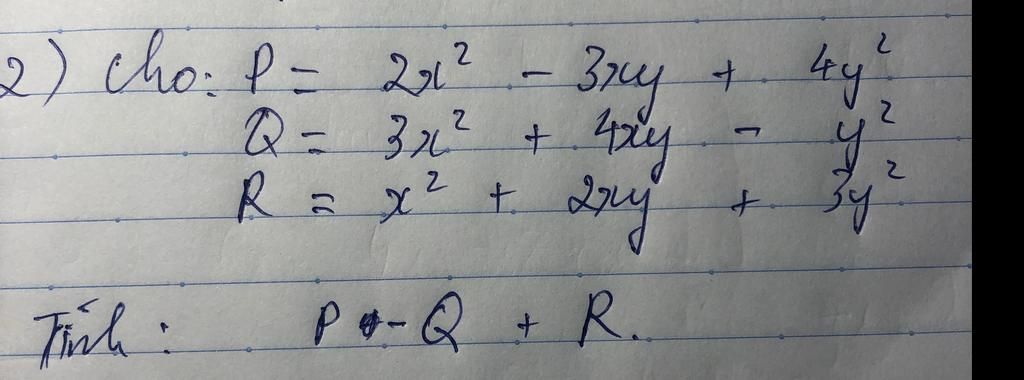 2) Cho: P = 2x² - 3xy + 4y²
Q = 3x² + 4xy - y²
R = x² + 2xy + 3y²
Tính: P - Q + R.